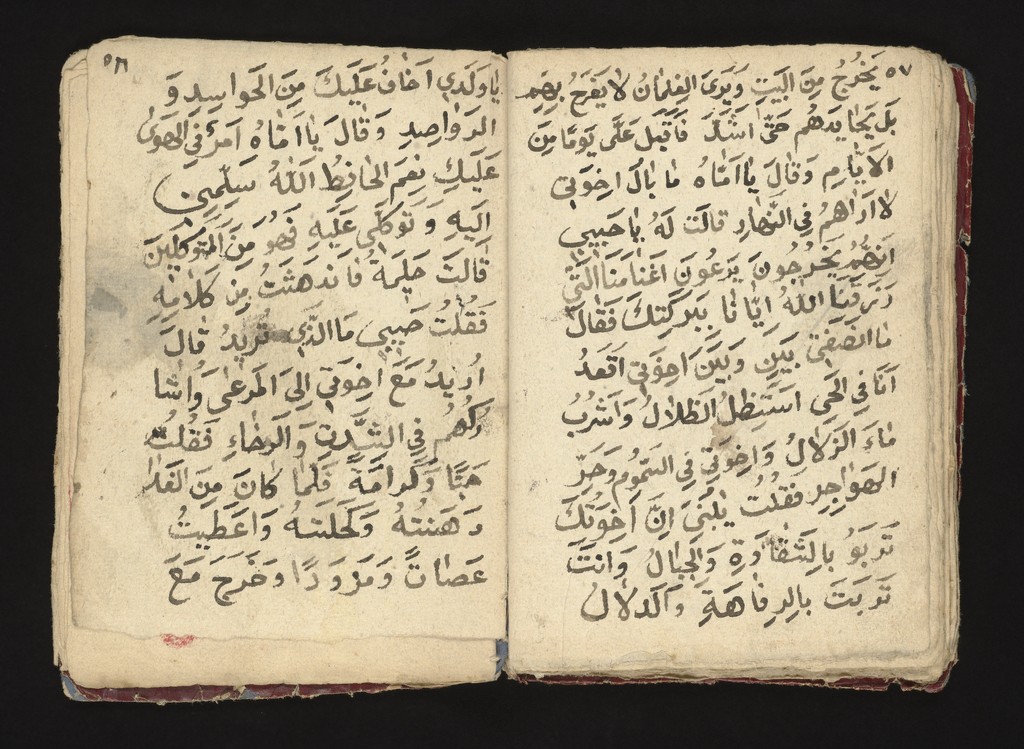 ٥٧
يَخْرُجُ مِنَ البَيْتِ وَيَرَىَ الغِلمَانُ لاَيَفرَحُ بِهِم
بَل يَجَايدَهُم حَتَّى اشْتَدَّ فَاَقبَلَ عَلَى يَومًا مِنَ
الاَيَّامِ وَقَالَ يَااُمَّاهُ مَا بَالَ اَخِوَتِي
لاَارَاهُم فِي النَّهَارِ قَالَت لَهُ يَاحَبِيبِي
اِنَّهُم يَخرُجُونَ يَرعُونَ اَغنَامَنَا الَّتِي
رَزَقَنَا اللهُ اِيَّانَا بِبَرَكَتِكَ فَقَالَ
مَاانصَفتِي بَينِ وَبَينَ اَخِوَتِي اَقعُدُ
اَنَا فِي الحَمَى استَظِلُ الظِلاَلُ وَاَشرَبُ
مَاءَ الزَلاَلُ وَاخِوَتِي فِي السَّمُومِ وَحَرِّ
الهَوَاجِرِ فَقُلتُ يَبُنَي اِنَّ اَخِوَتِكَ
تَرَبَو بِالشَّقَاوَةِ وَالجِبَالُ وَانتَ
تَرَبَيتَ بِالرِفَاهَةِ وَالدَلاَلِ
٥٨
يَاوَلَدِي اَخَافُ عَلَيكَ مِنَ الحَوَاسِدِ وَ
الرَوَاصِدِ وَقَالَ يَااُمَّاهُ اَمرَفِي الهَوَىٰ
عَلَيكِ نِعمَ الحَافِظُ اللهُ سَلِّمِينِي
اِلَيهِ وَتَوَكَّلِي عَلَيهِ فَهُوَ مِنَ المُتَوَكِلِينَ
قَالَت حَلِيمَةُ فَاندَهَشتُ مِن كَلاَمِهِ
فَقُلتُ حَبِيبِي مَاالَّذِي تُرِيدُ قَالَ
اُرِيدُ مَعَ اَخِوَتِي اِلَى المَرعَى وَاُشَا
رِكُهُم فِي الشِدَّةِ وَالرَخَاءِ فَقُلتُ
حَبًّا وَكَرَامَةً فَلَمَّا كَانَ مِنَ الغَدَا
دَهَنتُهُ وَكَحَلتَهُ وَاَعطَيتُ
عَصَاتً وَمَزوَدًا وَخَرَجَ مَعَ